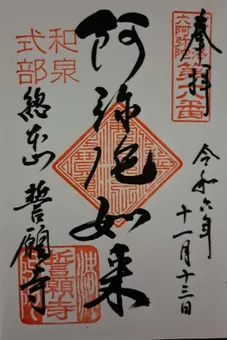 奉拝
第九番
令和六年
十一月十三日
阿弥陀如来
和泉
式部
総本山 誓願寺
誓願寺